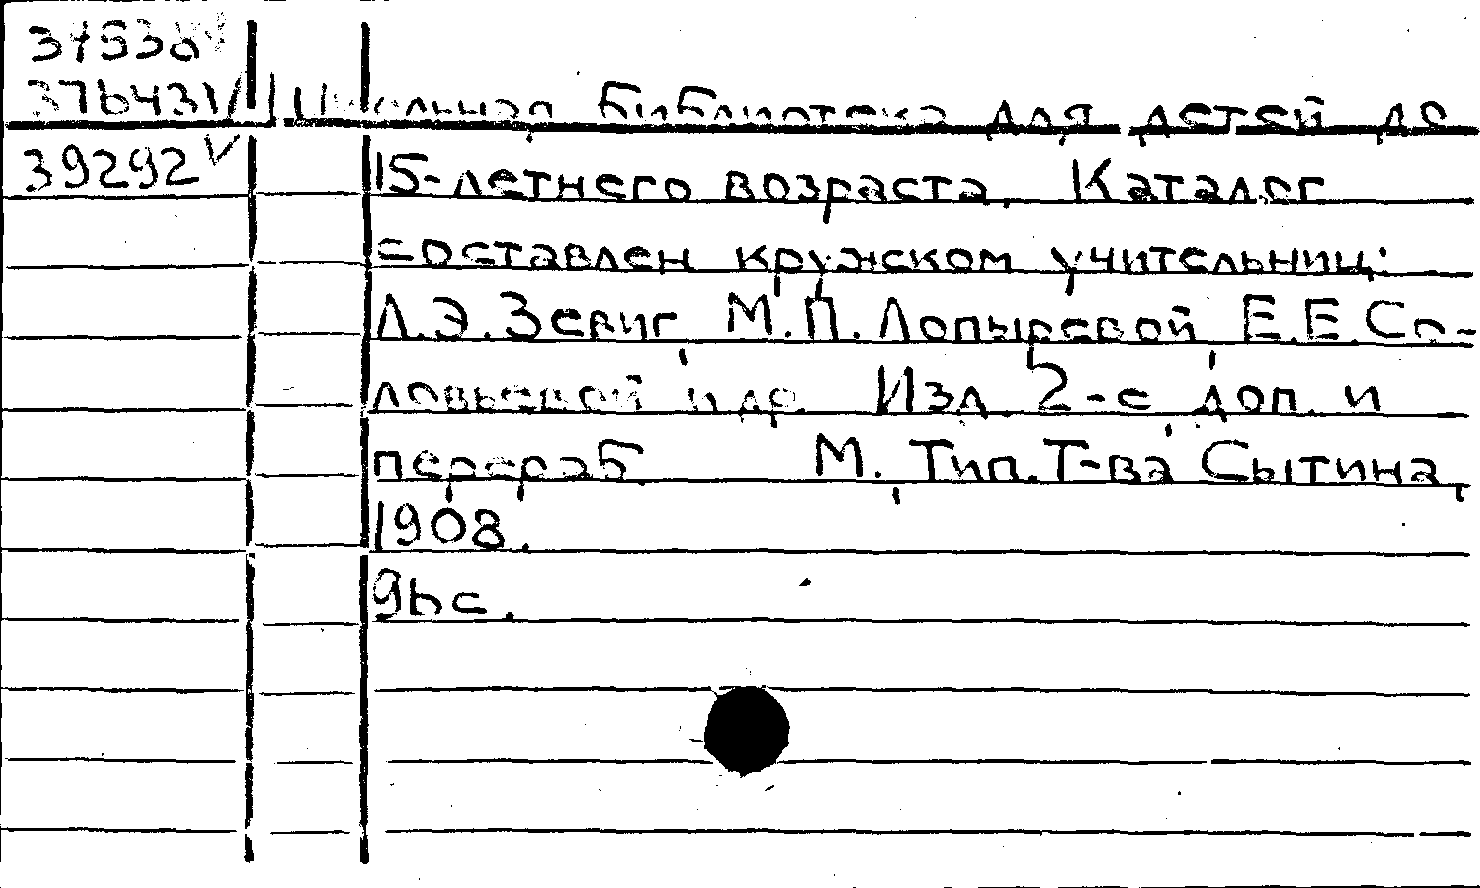 37538 V
37643 V Школьная библиотека для детей до
39292 V 15-летнего возраста. Каталог
составлен кружком учительниц:
Л.Э. Зевиг, М.П. Лопыревой, Е.Е. Со-
ловьевой и др. Изд. 2-е, доп. и
перераб. М., Тип. Т-ва Сытина,
1908.
96 с.